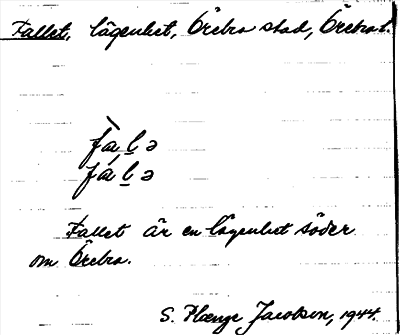 Fallet, lägenhet, Örebro stad, Örebro l.
fàlə
fálə
Fallet är en lägenhet söder
om Örebro.
S. Plænge Jacobson, 1944.